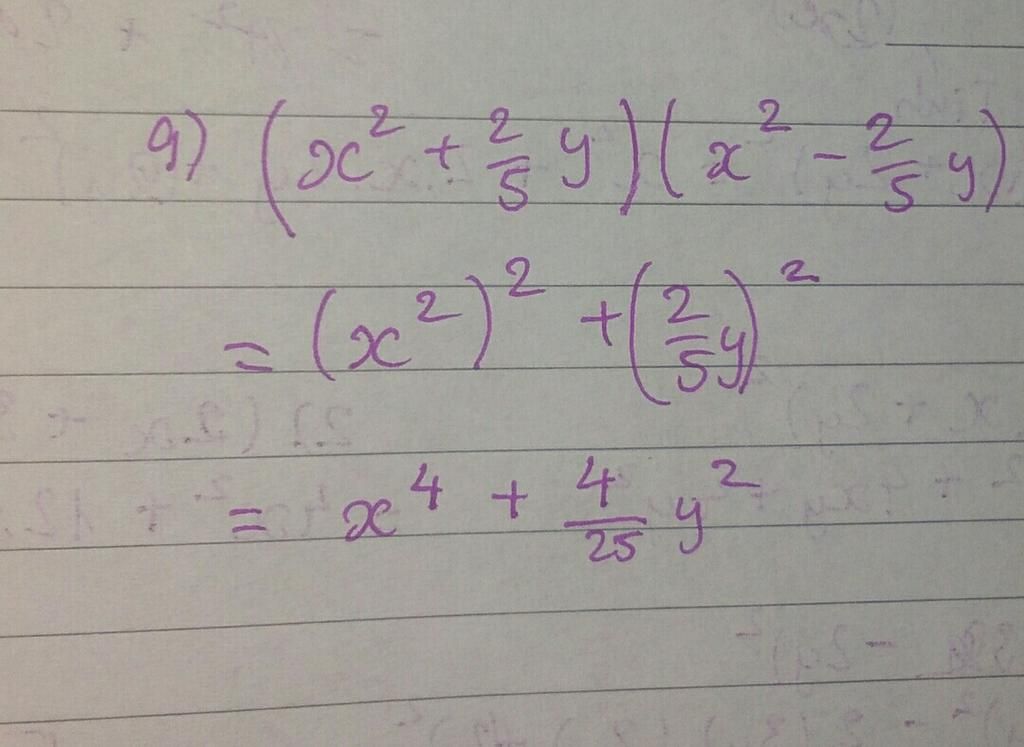 9) (x² + 2/5 y)(x² - 2/5 y)
= (x²)² + (2/5 y)²
= x⁴ + 4/25 y²